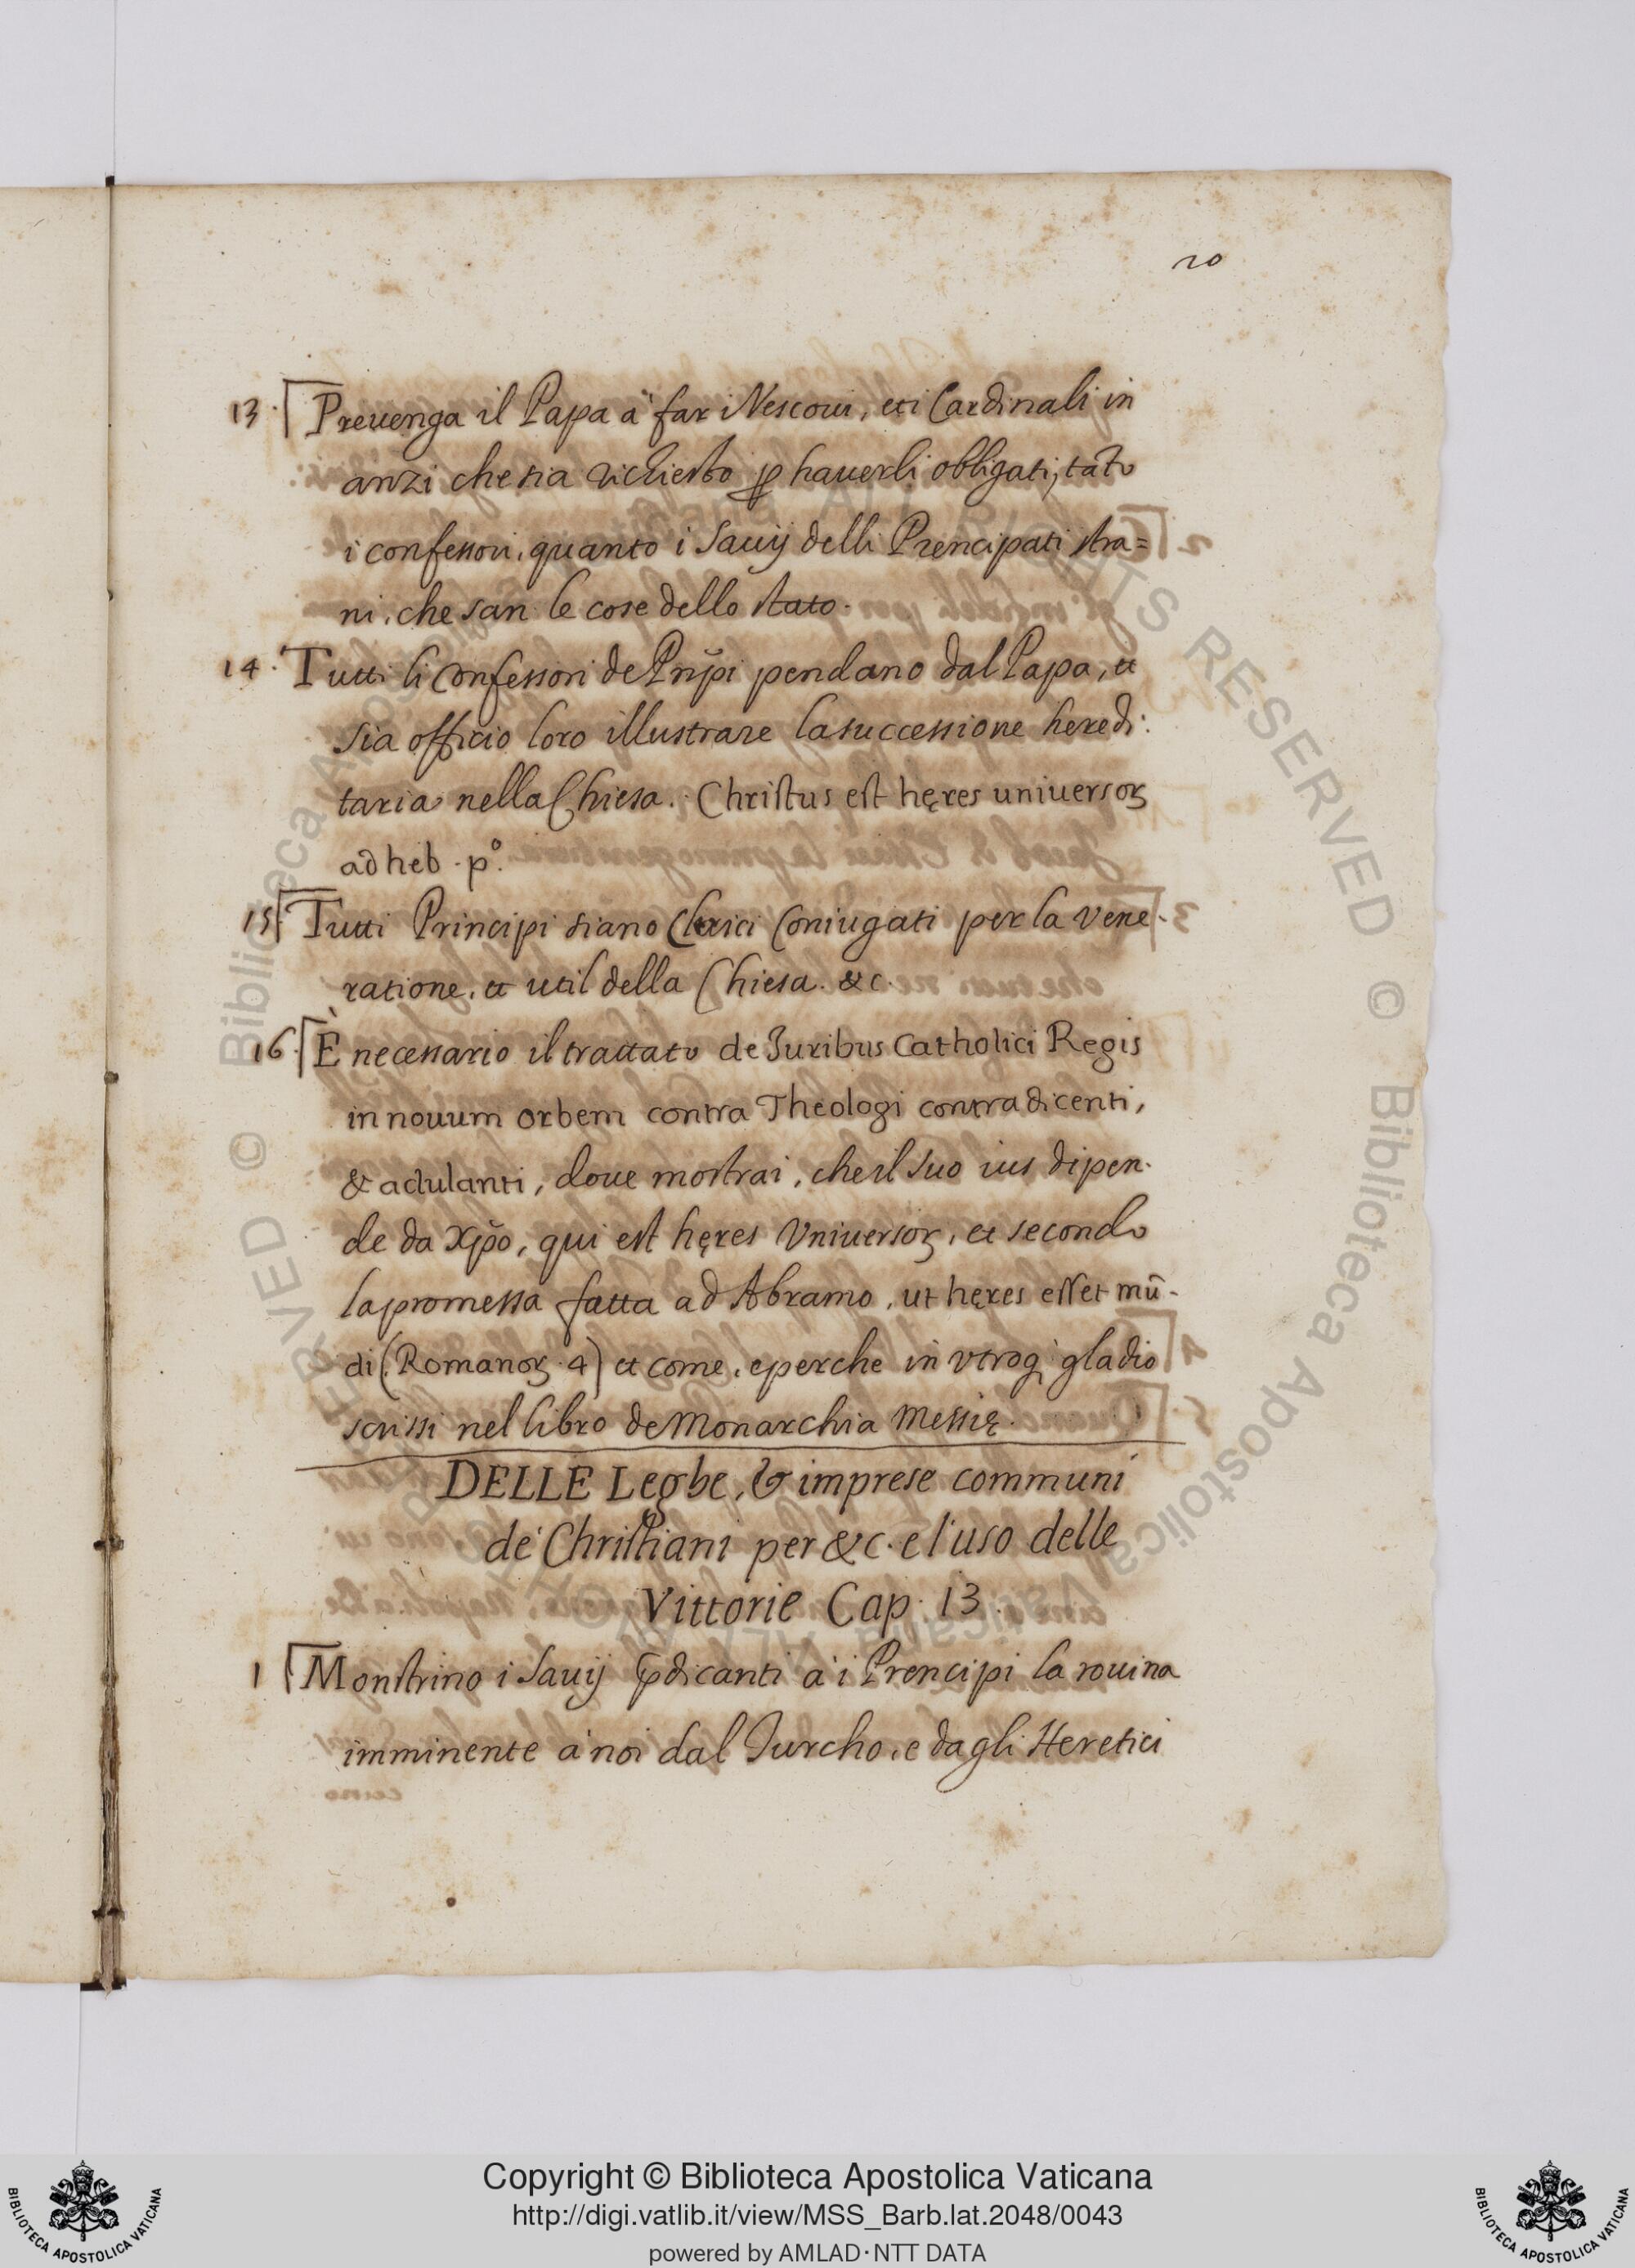 20
13. Prevenga il Papa à far i Vescovi, et i Cardinali in
anzi che sia richiesto ꝑ haverli obbligati, tāto
i confessori, quanto i Savij delli Prencipati stra=
ni, che san le cose dello stato.
14. Tutti li Confessori de Prñpi pendano dal Papa, et
sia officio loro illustrare la successione heredi:
taria nella Chiesa. Christus est hęres universoꝝ
ad heb. pº.
15 Tutti Principi siano Clerici Coniugati per la vene-
ratione, et util della Chiesa. &c.
16. È necessario il trattato de Iuribus Catholici Regis
in novum orbem contra Theologi contradicenti,
& adulanti, dove mostrai, che il suo ius dipen-
de da Xp̃o, qui est hęres Universoꝝ, et secondo
la promessa fatta ad Abramo, ut hęres esset mũ-
di (Romanoꝝ. 4) et come, e perche in utroq; gladio
scrissi nel libro de Monarchia Messię.
DELLE Legbe, & imprese communi
de' Christiani per &c. e l'uso delle
Vittorie Cap. 13.
1 Monstrino i Savij p̃dicanti à i Prencipi la rovina
imminente à noi dal Turcho, e dagli Heretici
Copyright © Biblioteca Apostolica Vaticana
http://digi.vatlib.it/view/MSS_Barb.lat.2048/0043
powered by AMLAD·NTT DATA
BIBLIOTECA APOSTOLICA VATICANA
BIBLIOTECA APOSTOLICA VATICANA